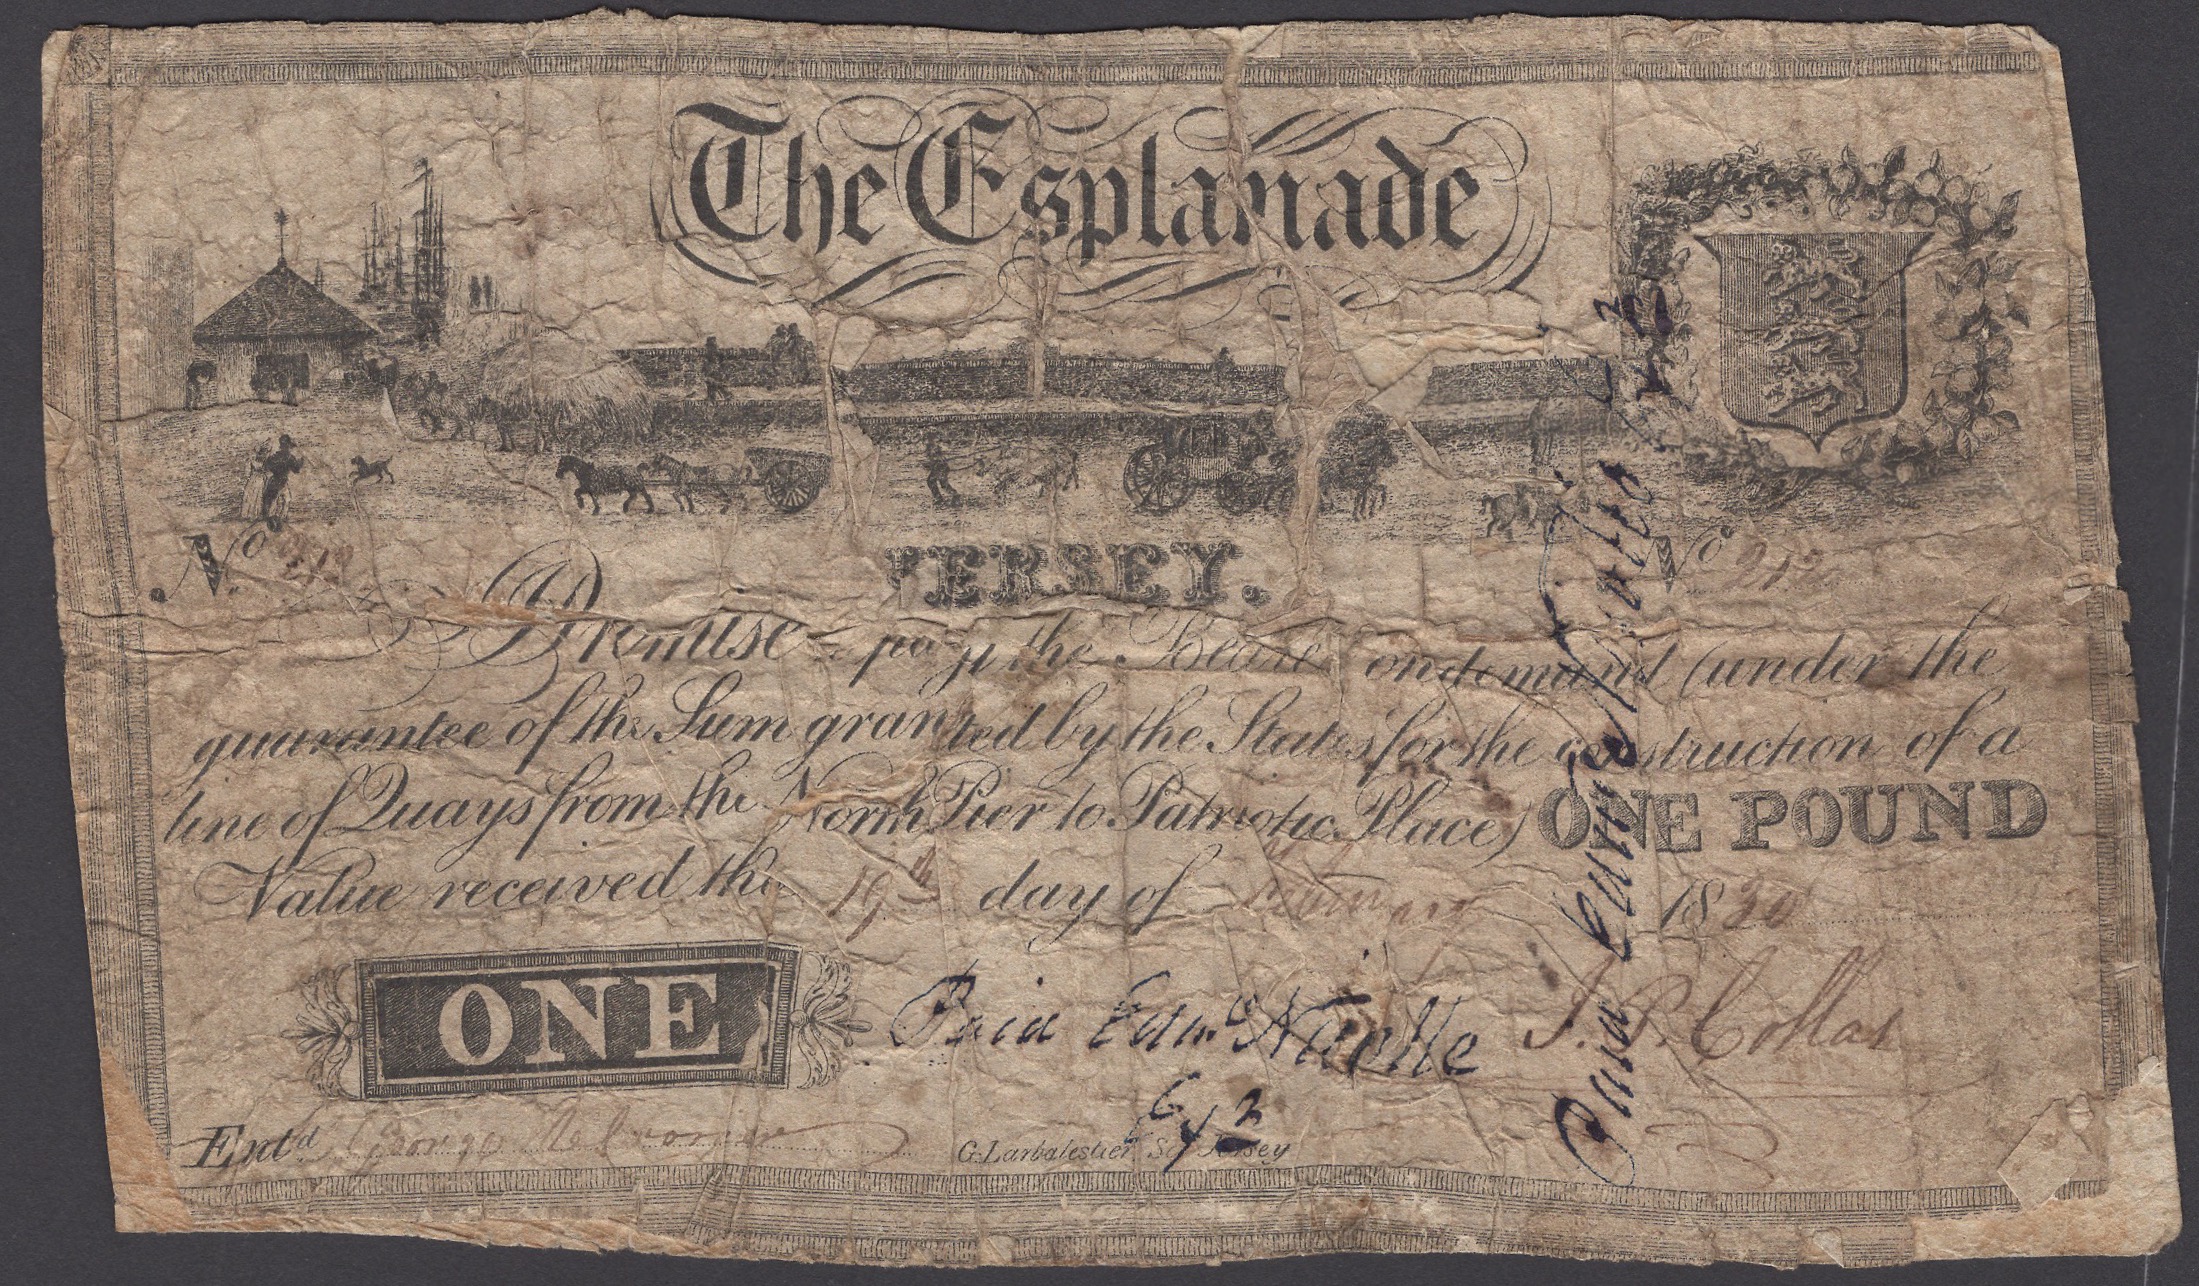 The Esplanade
JERSEY.
No. 212 No 212
I Promise to pay the Bearer on demand (under the
guarantee of the Sum granted by the States for the construction of a
line of Quays from the North Pier to Patriotic Place) ONE POUND
Value received the 19th day of 1830
ONE
Paid Edmd Nicolle
J. P. Collas
Entd George
G. Larbalestier Sc. Jersey
Paid Edmd Nicolle